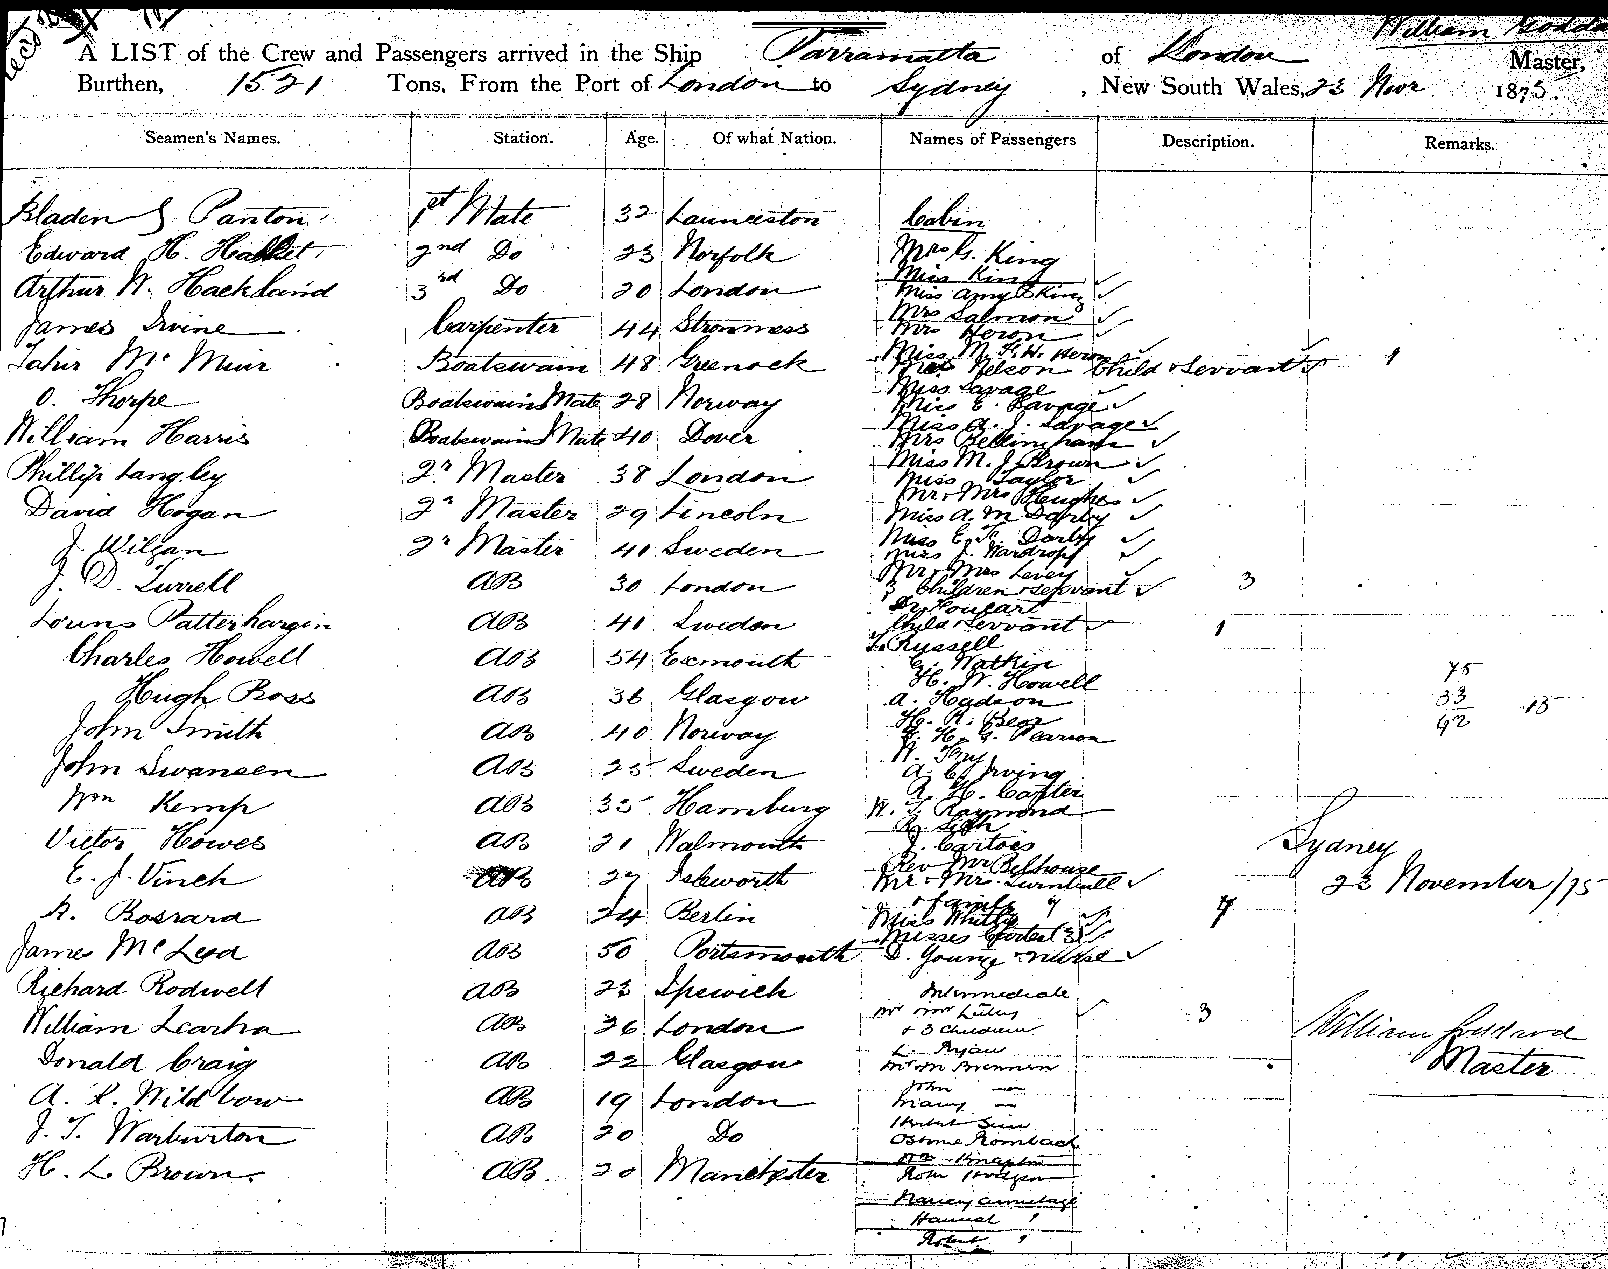 William
A LIST of the Crew and Passengers arrived in the Ship Parramatta of London Master,
Burthen, 1521 Tons, From the Port of London to Sydney, New South Wales, 23 Novr 1875.
Seamen's Names. Station. Age. Of what Nation. Names of Passengers Description. Remarks.
Bladen J Panton 1st Mate 32 Launceston Cabin
Edward H. 2nd Do 23 Norfolk Mrs G. King
Miss King
Arthur W. Hackland 3rd Do 20 London Miss Amy King
Mrs Salmon
James Irvine Carpenter 44 Stromness Mrs Heron
Miss M. F. H. Heron
Mc Muir Boatswain 48 Greenock Nelson Child & Servant 1
Miss Savage
O. Thorpe Boatswains Mate 28 Norway Miss E. Savage
Miss A. J. Savage
William Harris Boatswains Mate 40 Dover Mrs Bellingham
Miss M. J. Brown
Phillip Langley 2r Master 38 London Miss Taylor
Mr & Mrs Hughes
David Hogan 2r Master 29 Lincoln Miss A. M Darby
Miss E. F. Darby
J. Wilgan 2r Master 41 Sweden Miss J. Wardrop
Mr & Mrs Levey
J. D. Turrell AB 30 London 3 Children & servant 3
Dr Foucart
AB 41 Sweden Child & Servant 1
Russell
Charles Howell AB 54 Exmouth G. Watkin 75
H. W. Howell
Hugh Ross AB 36 Glasgow A. Hadson 33 15
H. R. Bear
John Smith AB 40 Norway G. H. G. Pearson 92
W. Fry
John Swansen AB 25 Sweden A. E. Irving
A. H. Carter
Wm Kemp AB 35 Hamburg W. T. Raymond
Victor Howes AB 21 Walmouth J. Cartois Sydney
Rev Mr Belhouse
E. J. Vinch AB 27 Isleworth Mr & Mrs Turnbull 23 November /75
& family 7
R. Bosrard AB 24 Berlin Miss 7
Misses 3
James McLeod AB 50 Portsmouth D. Young & nurse
Richard Rodwell AB 23 Ipswich Intermediate
William AB 26 London & 3 Children 3 William Goddard
L. Ryan
Donald Craig AB 22 Glasgow Brennen Master
John
A. R. Wildbow AB 19 London Mary
J. T. Warburton AB 20 Do Osborne Rombach
H. L. Brown AB 20 Manchester Hodgson
Nancy Armitage
Hannah "
Robert "